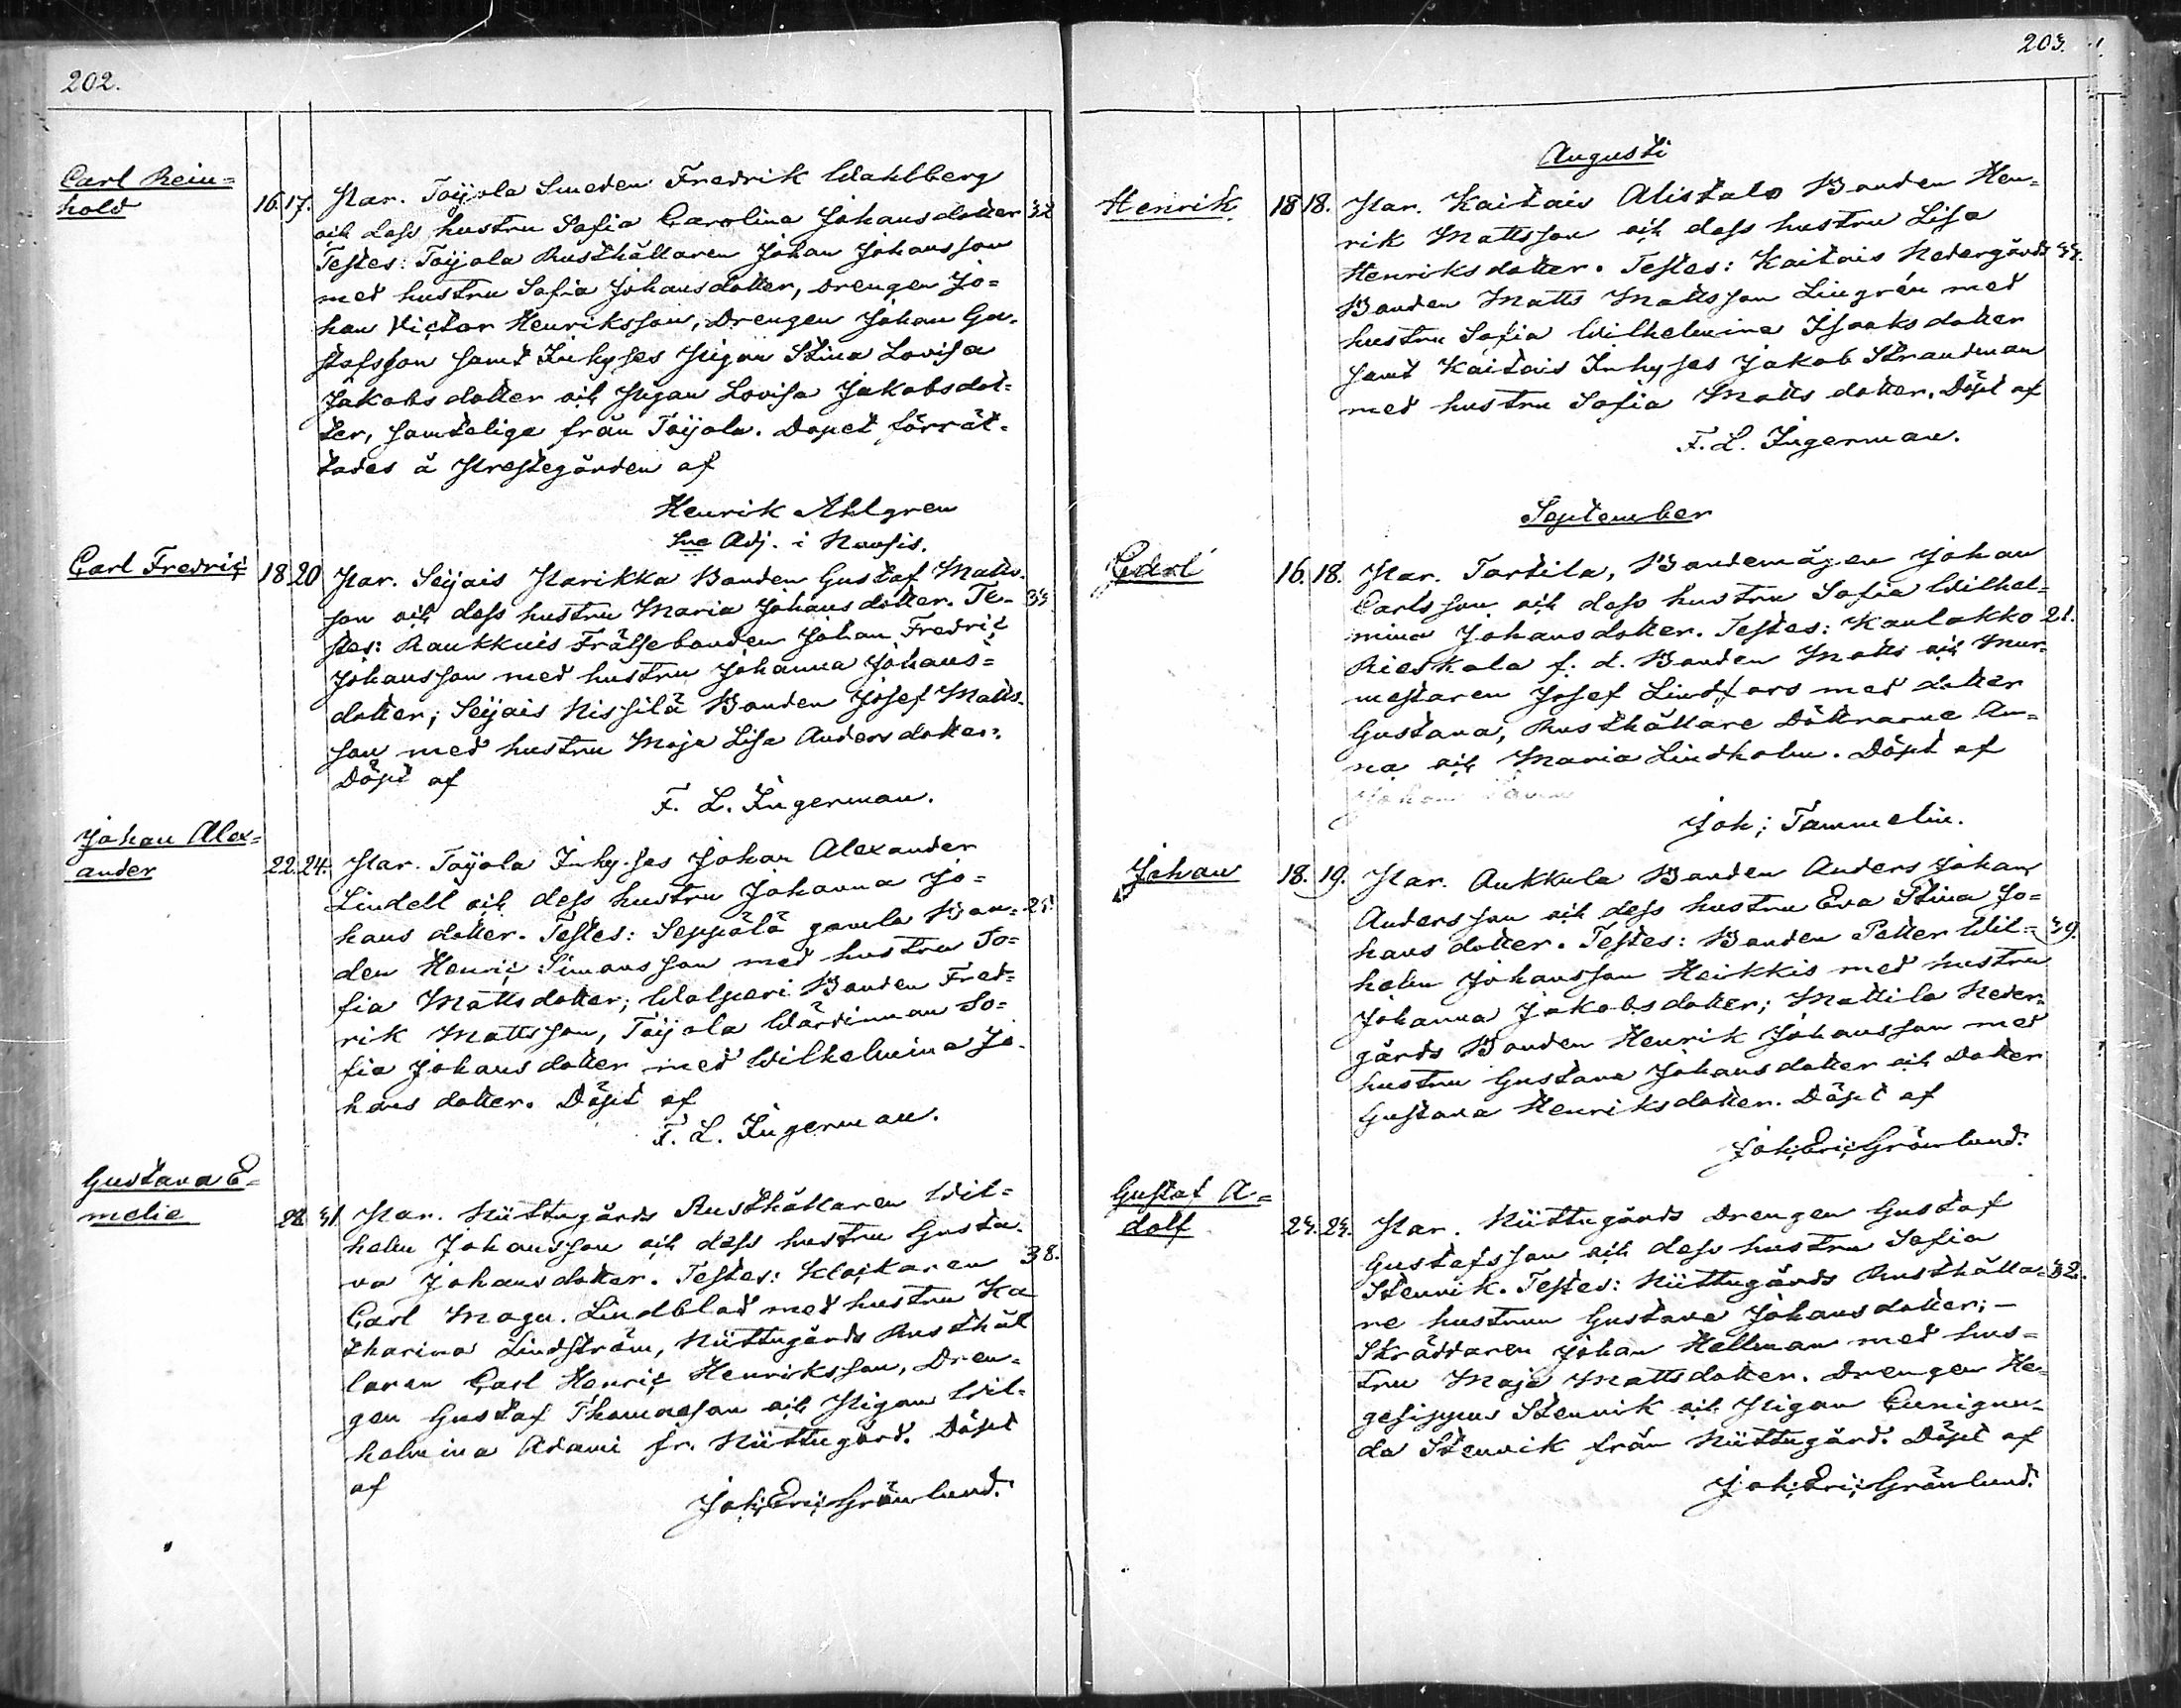 202.
Carl Rein=
hold
16. 17. Par. Toijola Smeden Fredrik Wahlberg
och dess hustru Sofia Carolina Johansdotter 32
Testes: Toijola Rusthållaren Johan Johansson
med hustru Sofia Johansdotter, drengen Jo=
han Victor Henriksson, Drengen Johan Gu=
stafsson samt Inhyses Pigan Stina Lovisa
Jakobsdotter och Pigan Lovisa Jakobsdot=
ter, samtelige från Toijola. Dopet förrät=
tades å Prestegården af
Henrik Ahlgren
Sac Adj. i Nousis.
Carl Fredric 18 20 Par. Seijais Parikka Bonden Gustaf Matts=
son och dess hustru Maria Johansdotter. Te= 33
stes: Raukkuis Frälsebonden Johan Fredric
Johansson med hustru Johanna Johans=
dotter; Seijais Nissilä Bonden Josef Matts=
son med hustru Maja Lisa Andersdotter.
Döpt af
F. L. Ingerman.
Johan Alex=
ander
22. 24. Par. Toijola Inhyses Johan Alexander
Lindell och dess hustru Johanna Jo=
hans dotter. Testes: Seppälä gamla Bon= 25
den Henric Simonsson med hustru So=
fia Mattsdotter; Walperi Bonden Fred=
rik Mattsson, Toijola Wärdinnan So=
fia Johansdotter med Wilhelmina Jo=
hans dotter. Döpt af
F. L. Ingerman.
Gustava E=
melie
28. 31 Par. Niittugårds Rusthållaren Wil=
helm Johansson och dess hustru Gusta=
va Johansdotter. Testes: Klockaren 38.
Carl Magn. Lindblad med hustru Ka
tharina Lindström, Niittugårds Rusthål
laren Carl Henric Henriksson, Dren=
gen Gustaf Thomasson och Pigan Wil=
helmina Adami fr. Niittugård. Döpt
af
Joh: Eric Grönlund.
203.
Augusti
Henrik 18 18. Par. Kaitais Alistalo Bonden Hen=
rik Mattsson och dess hustru Lisa
Henriksdotter. Testes: Kaitais Nedergårds 33.
Bonden Matts Mattsson Lingrén med
hustru Sofia Wilhelmina Isaksdotter
samt Kaitais Inhyses Jakob Strandman
med hustru Sofia Matts dotter. Döpt af
F. L. Ingerman.
September
Carl 16. 18. Par. Tortila, Bondemågen Johan
Carlsson och dess hustru Sofia Wilhel=
mina Johansdotter. Testes: Kaulakko 21.
Rieskala f. d. Bonden Matts och Mur=
mestaren Josef Lindfors med dotter
Gustava, Rusthållare Döttrarne An=
na och Maria Lindholm. Döpt af
Joh: Tammelin.
Johan 18. 19. Par. Aukkula Bonden Anders Johan
Andersson och dess hustru Eva Stina Jo=
hans dotter. Testes: Bonden Petter Wil= 39.
helm Johansson Heikkis med hustru
Johanna Jakobsdotter; Mattila Neder=
gårds Bonden Henrik Johansson med
hustru Gustava Johansdotter och Dotter
Gustava Henriksdotter. Döpt af
Joh: Eric Grönlund.
Gustaf A=
dolf
23. 23. Par. Niittugårds Drengen Gustaf
Gustafsson och dess hustru Sofia
Stenvik. Testes: Niittugårds Rusthålla= 32.
re hustrun Gustava Johansdotter; —
Skräddaren Johan Hellman med hus=
tru Maja Mattsdotter. Drengen He=
gesippus Stenvik och Pigan Cunigun=
da Stenvik från Niittugård. Döpt af
Joh: Eric Grönlund.